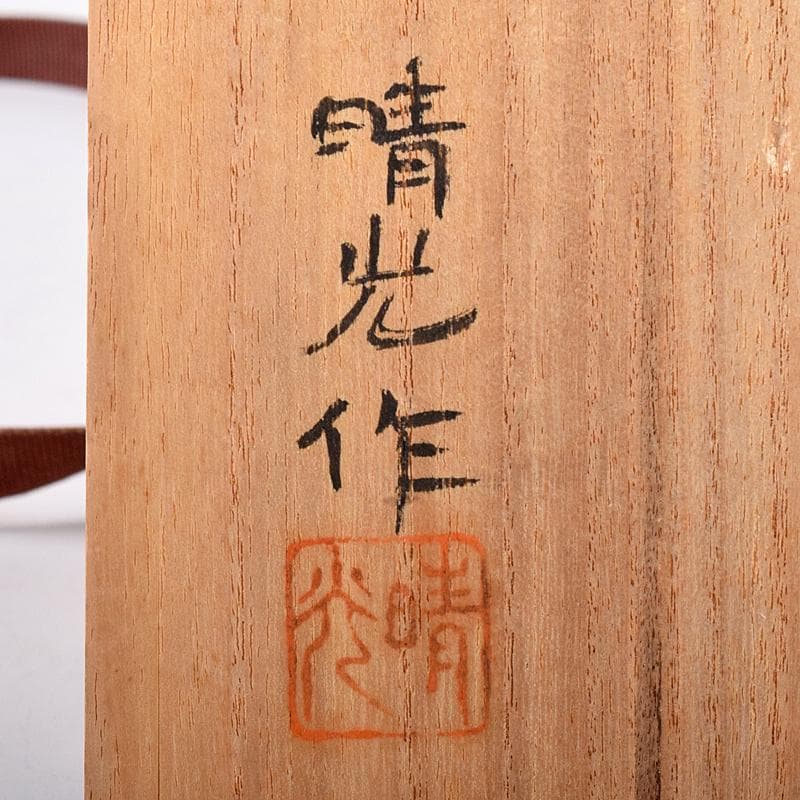 晴光作
晴光